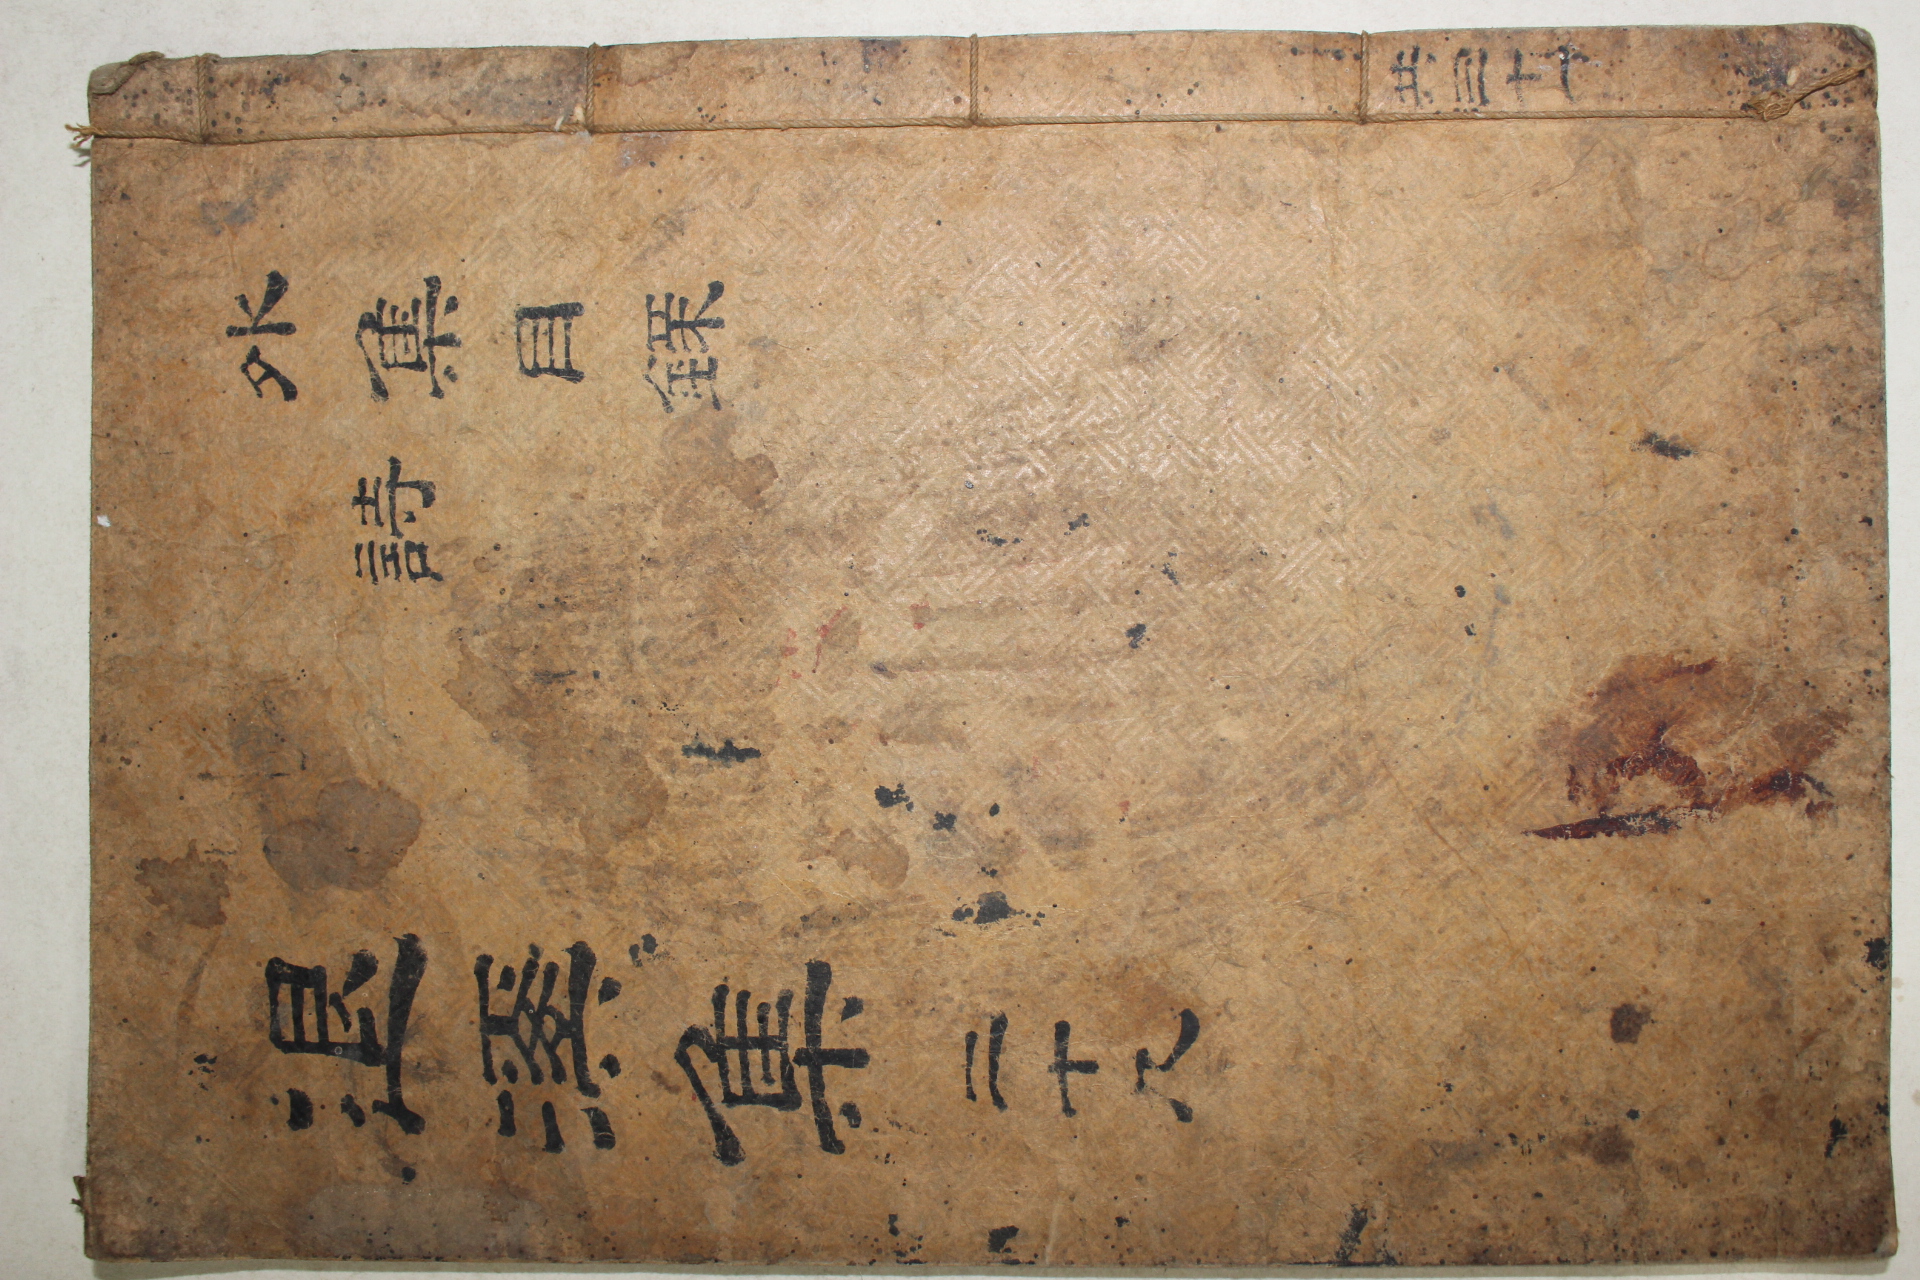 外集目錄
詩
退溪集 二十八
共三十一